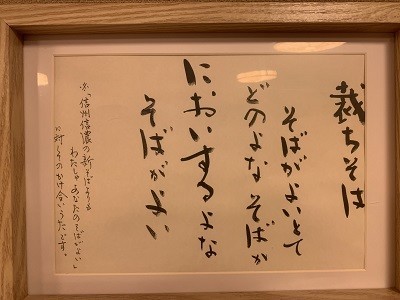 裁ちそは
そばがよいとて
どのよなそばか
においするよな
そばがよい
※「信州信濃の新そばよりも
わたしゃあなたのそばがよい」
に対してのかけ合いうたです。